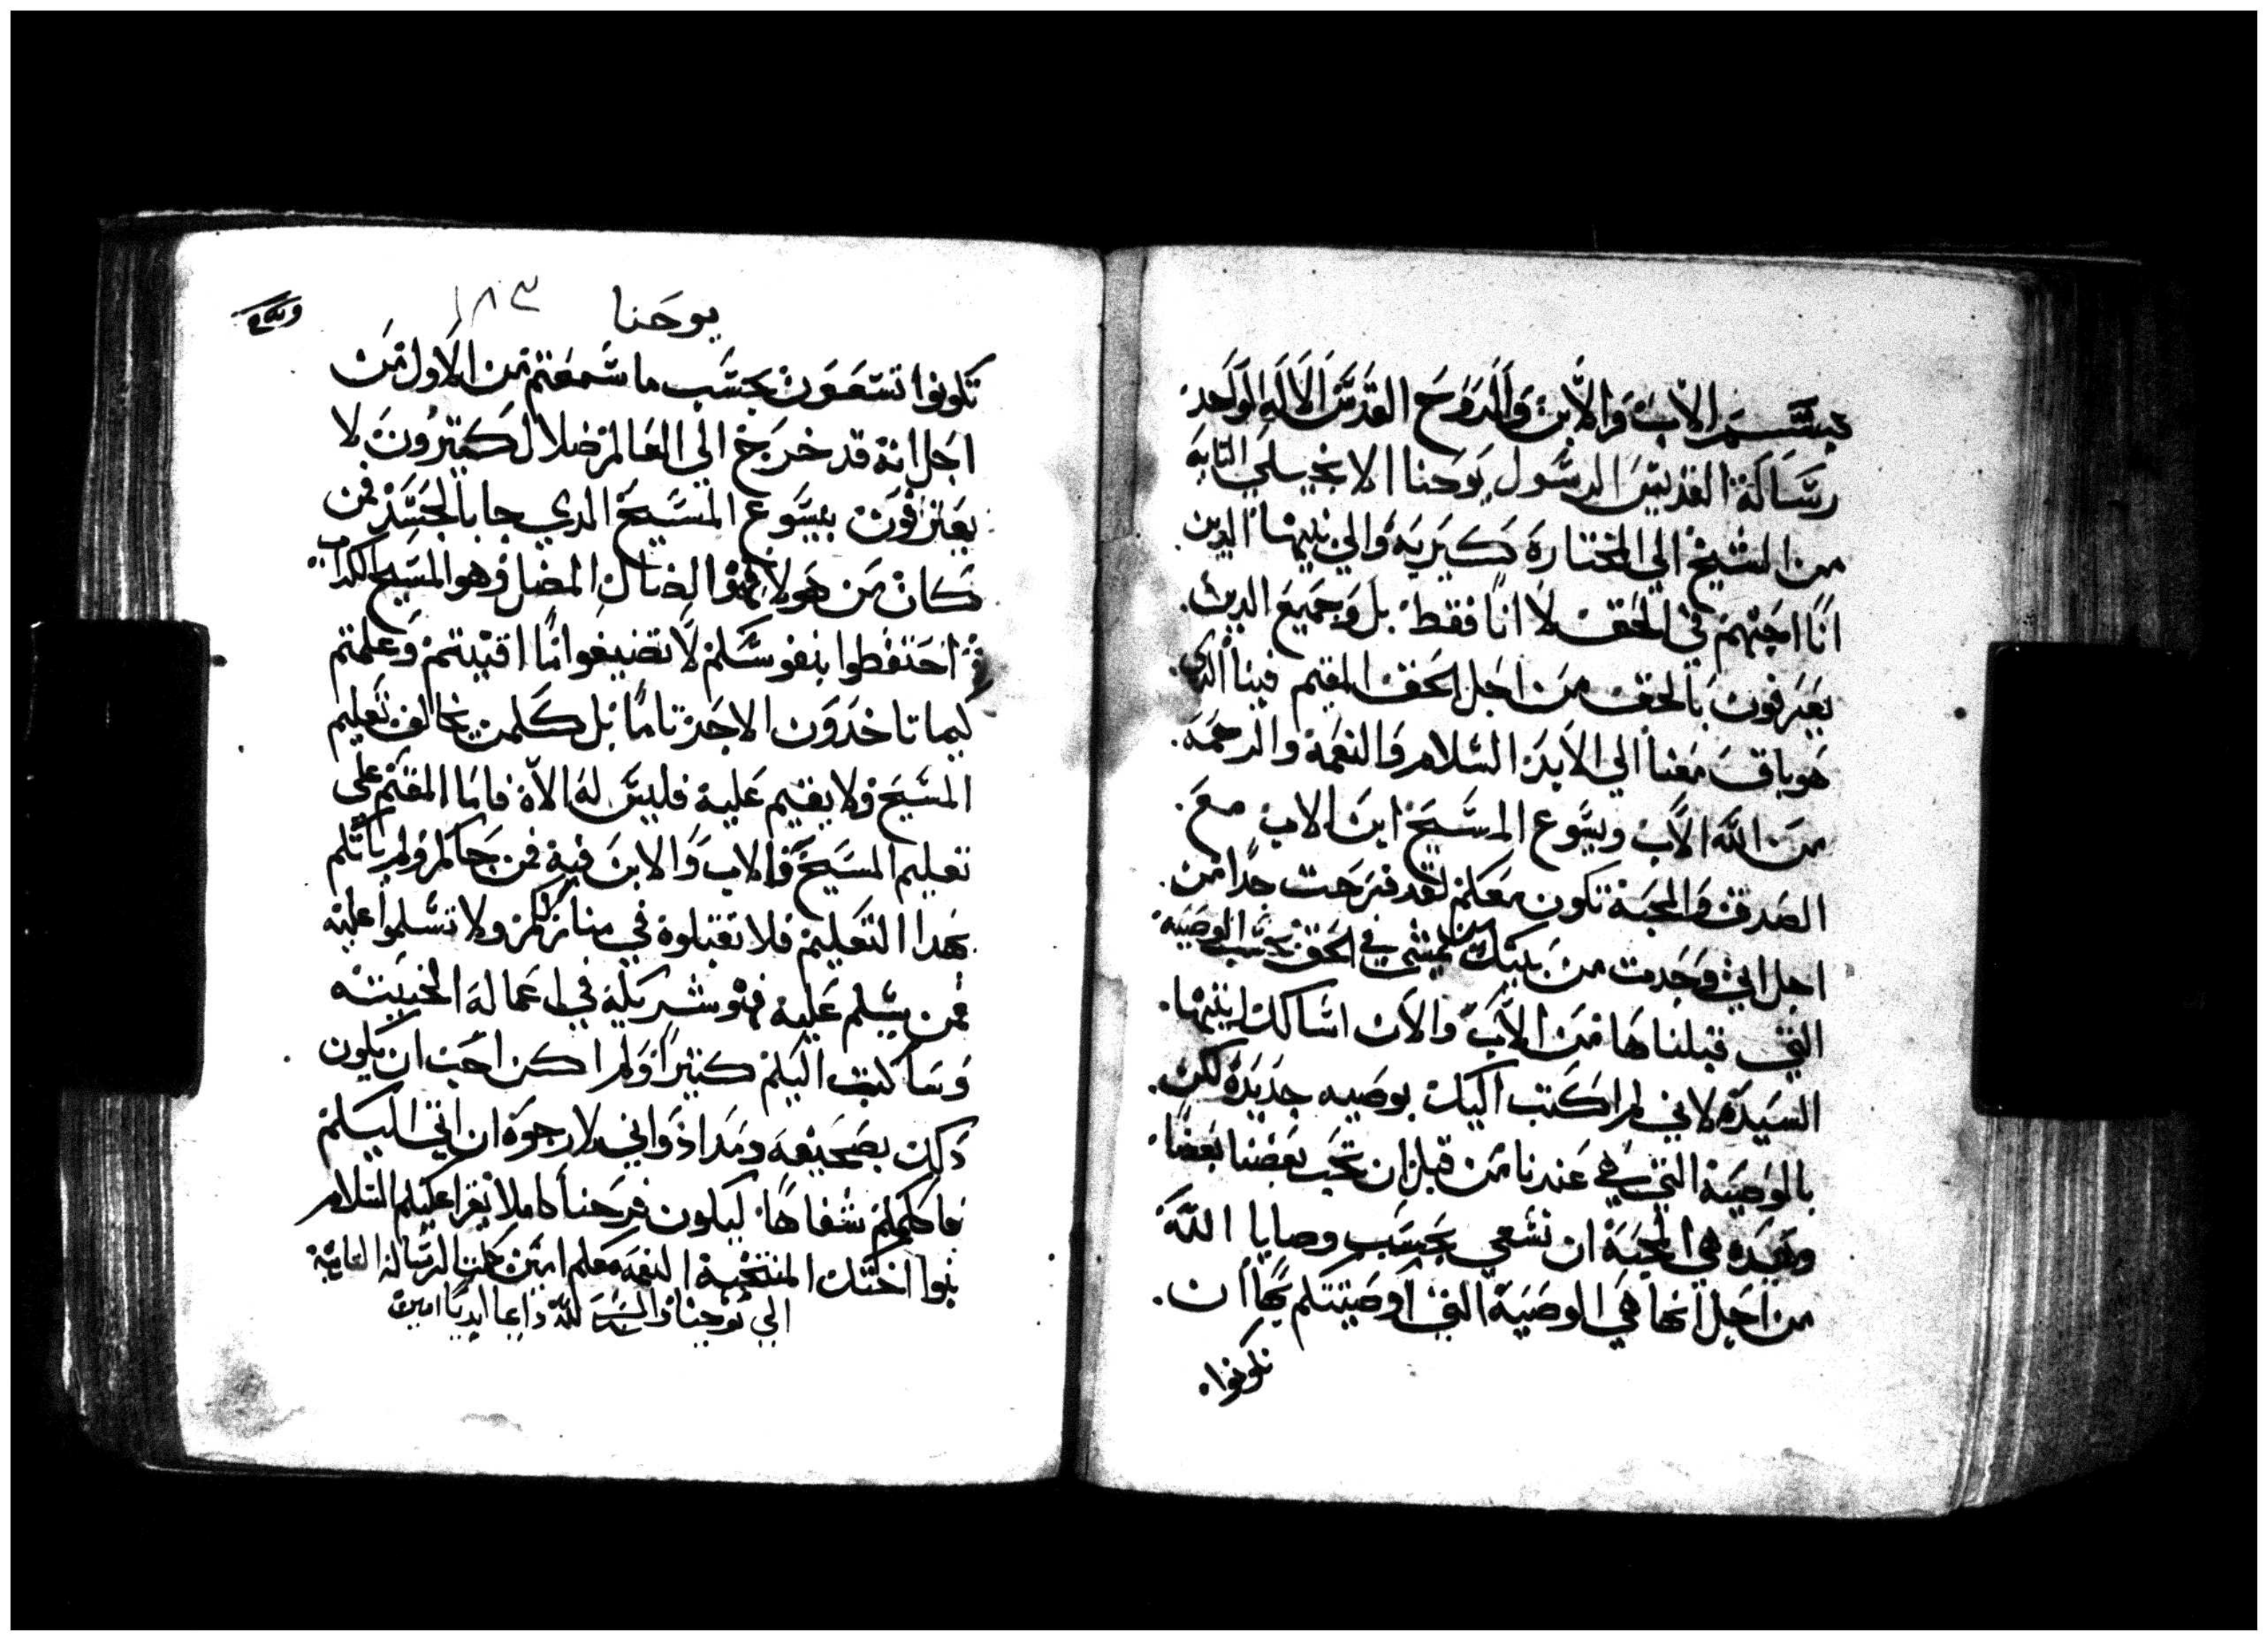 بسم الاب والابن والروح القدس الاله الواحد
رسالة القديس الرسول يوحنا الانجيلي التانيه
من الشيخ الي المختارة كيريه والي بنيها الدين
انا احبهم في الحق لا انا فقط بل وجميع الدين
يعرفون بالحق من اجل الحق المقيم فينا الدي
هو باق معنا الي الابد السلام والنعمة والرحمة
من الله الاب ويسوع المسيح ابن الاب مع
الصدق والمحبة تكون معكم لقد فرحت جدا من
اجل اني وجدت من بنيك من يمشي في الحق بحسب الوصيه
التي قبلناها من الاب والان اسالك ايتها
السيدة لاني لم اكتب اليك بوصيه جديدة لكن
بالوصية التي هي عندنا من قبل ان نحب بعضنا بعضا
وهده هي المحبة ان نسعي بحسب وصايا الله
من اجل انها هي الوصية التي اوصيتكم بها ان
تكونوا
يوحنا ١٨٣
تكونوا تسعون بحسب ما سمعتم من الاول من
اجل انه قد خرج الي العالم ضلال كتيرون لا
يعترفون بيسوع المسيح الدي جا بالجسد فمن
كان من هولا فهو الضال المضل وهو المسيح الكداب
احتفطوا بنفوسكم لا تضيعوا ما اقتنيتم وعلمتم
كيما تاخدون الاجر تاما بل كلمن يخالف تعليم
المسيح ولا يقيم عليه فليس له الاه فاما المقيم علي
تعليم المسيح فالاب والابن فيه فمن جاكم ولم ياتكم
بهدا التعليم فلا تقبلوه في منازلكم ولا تسلموا عليه
فمن يسلم عليه فهو شريكه في اعماله الخبيته
وسا كتبت اليكم كتيرا ولم اكن احب ان يكون
دلك بصحيفه ومداد واني لارجوه ان اتي اليكم
فاكلمكم شفاها ليكون فرحنا كاملا يقرا عليكم السلام
بنوا اختك المنتخبة النعمه معكم امين كملت الرسالة التانية
الي يوحنا والسبح لله دايما ابديا امين